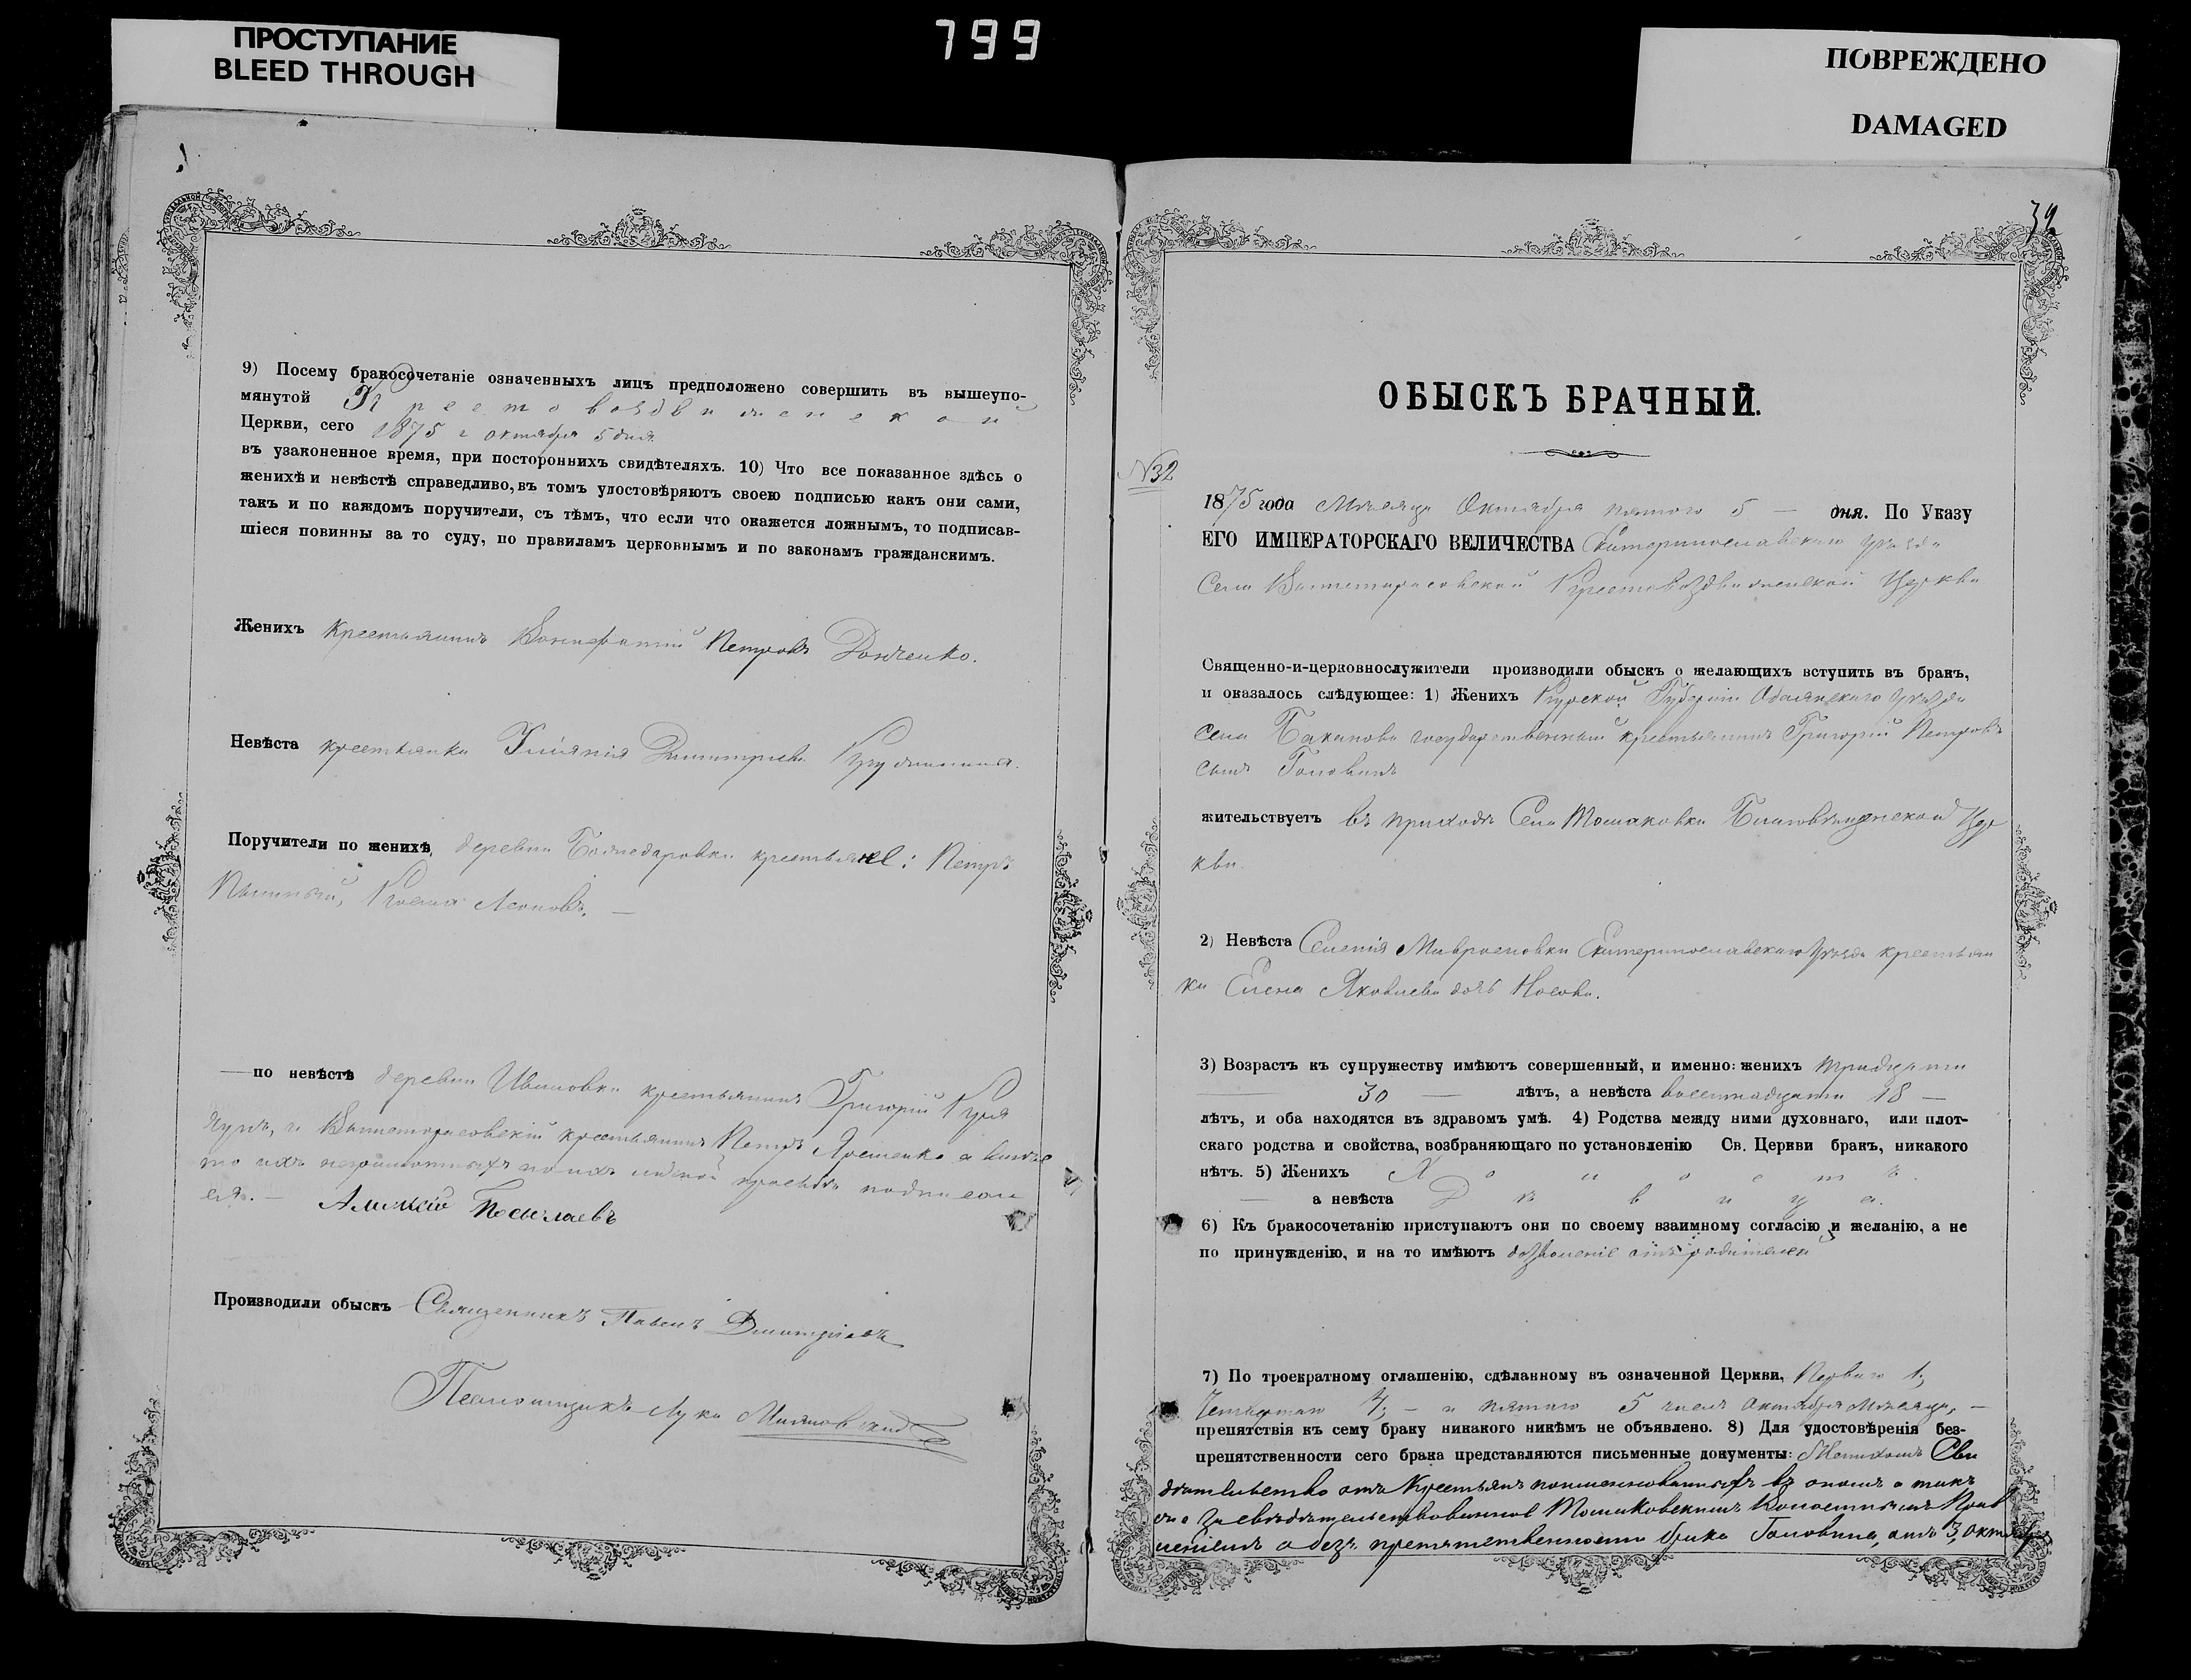 ПРОСТУПАНИЕ
BLEED THROUGH
799
ПОВРЕЖДЕНО
DAMAGED
9) Посему бракосочетаніе означенныхъ лицъ предположено совершить въ вышеупо-
мянутой Крестовоздвиженской
Церкви, сего 1875 г октября 5 дня
въ узаконенное время, при постороннихъ свидѣтеляхъ. 10) Что все показанное здѣсь о
женихѣ и невѣстѣ справедливо, въ томъ удостовѣряютъ своею подписью какъ они сами,
такъ и по каждомъ поручители, съ тѣмъ, что если что окажется ложнымъ, то подписав-
шіеся повинны за то суду, по правиламъ церковнымъ и по законамъ гражданскимъ.
Женихъ Крестьянинъ Вонифатій Петровъ Донченко.
Невѣста крестьянка Димитріева
Поручители по женихѣ, деревни крестьяне: Петръ
Косма Леоновъ. —
—по невѣстѣ деревни Ивановки крестьянинъ Григорій
и крестьянинъ Петръ а вмѣс
то ихъ неграмотныхъ по ихъ личной прозьбѣ подписал
ся. —
Производили обыскъ Священникъ Павелъ Димитріевъ
Псаломщикъ Лука
32
ОБЫСКЪ БРАЧНЫЙ.
N32
1875 года Мѣсяца Октября пятого 5 — дня. По Указу
ЕГО ИМПЕРАТОРСКАГО ВЕЛИЧЕСТВА Екатеринославскаго уѣзда
Села Вышетарасовской Крестовоздвиженской Церкви
Священно-и-церковнослужители производили обыскъ о желающихъ вступить въ бракъ,
и оказалось слѣдующее: 1) Женихъ Курской Губерніи Обоянскаго Уѣзда
села Баканова государственный крестьянинъ Григорій Петровъ
сынъ Головинъ
жительствуетъ въ приходѣ Села Томаковки Благовѣщенской Цер
кви.
2) Невѣста Селенія Мавросповки Екатеринославскаго Уѣзда крестьян
ка Елена Яковлева дочь Носова.
3) Возрастъ къ супружеству имѣютъ совершенный, и именно: женихъ тридцати
30 — лѣтъ, а невѣста восемнадцати 18 —
лѣтъ, и оба находятся въ здравомъ умѣ. 4) Родства между ними духовнаго, или плот-
скаго родства и свойства, возбраняющаго по установленію Св. Церкви бракъ, никакого
нѣтъ. 5) Женихъ Холостъ.
— а невѣста Дѣвица.
6) Къ бракосочетанію приступаютъ они по своему взаимному согласію и желанію, а не
по принужденію, и на то имѣютъ дозволеніе отъ родителей
7) По троекратному оглашенію, сдѣланному въ означенной Церкви, Перваго 1;
Четвертаго 4; — и пятаго 5 числъ Октября мѣсяца, —
препятствія къ сему браку никакого никѣмъ не объявлено. 8) Для удостовѣренія без-
препятственности сего брака представляются письменные документы: Сви
дѣтельство отъ Крестьянъ поименованныхъ въ ономъ а так
же Засвѣдѣтельствованное Томаковскимъ Волостнымъ Прав
леніемъ о безъ препятственности брака Головина, отъ 3, октября